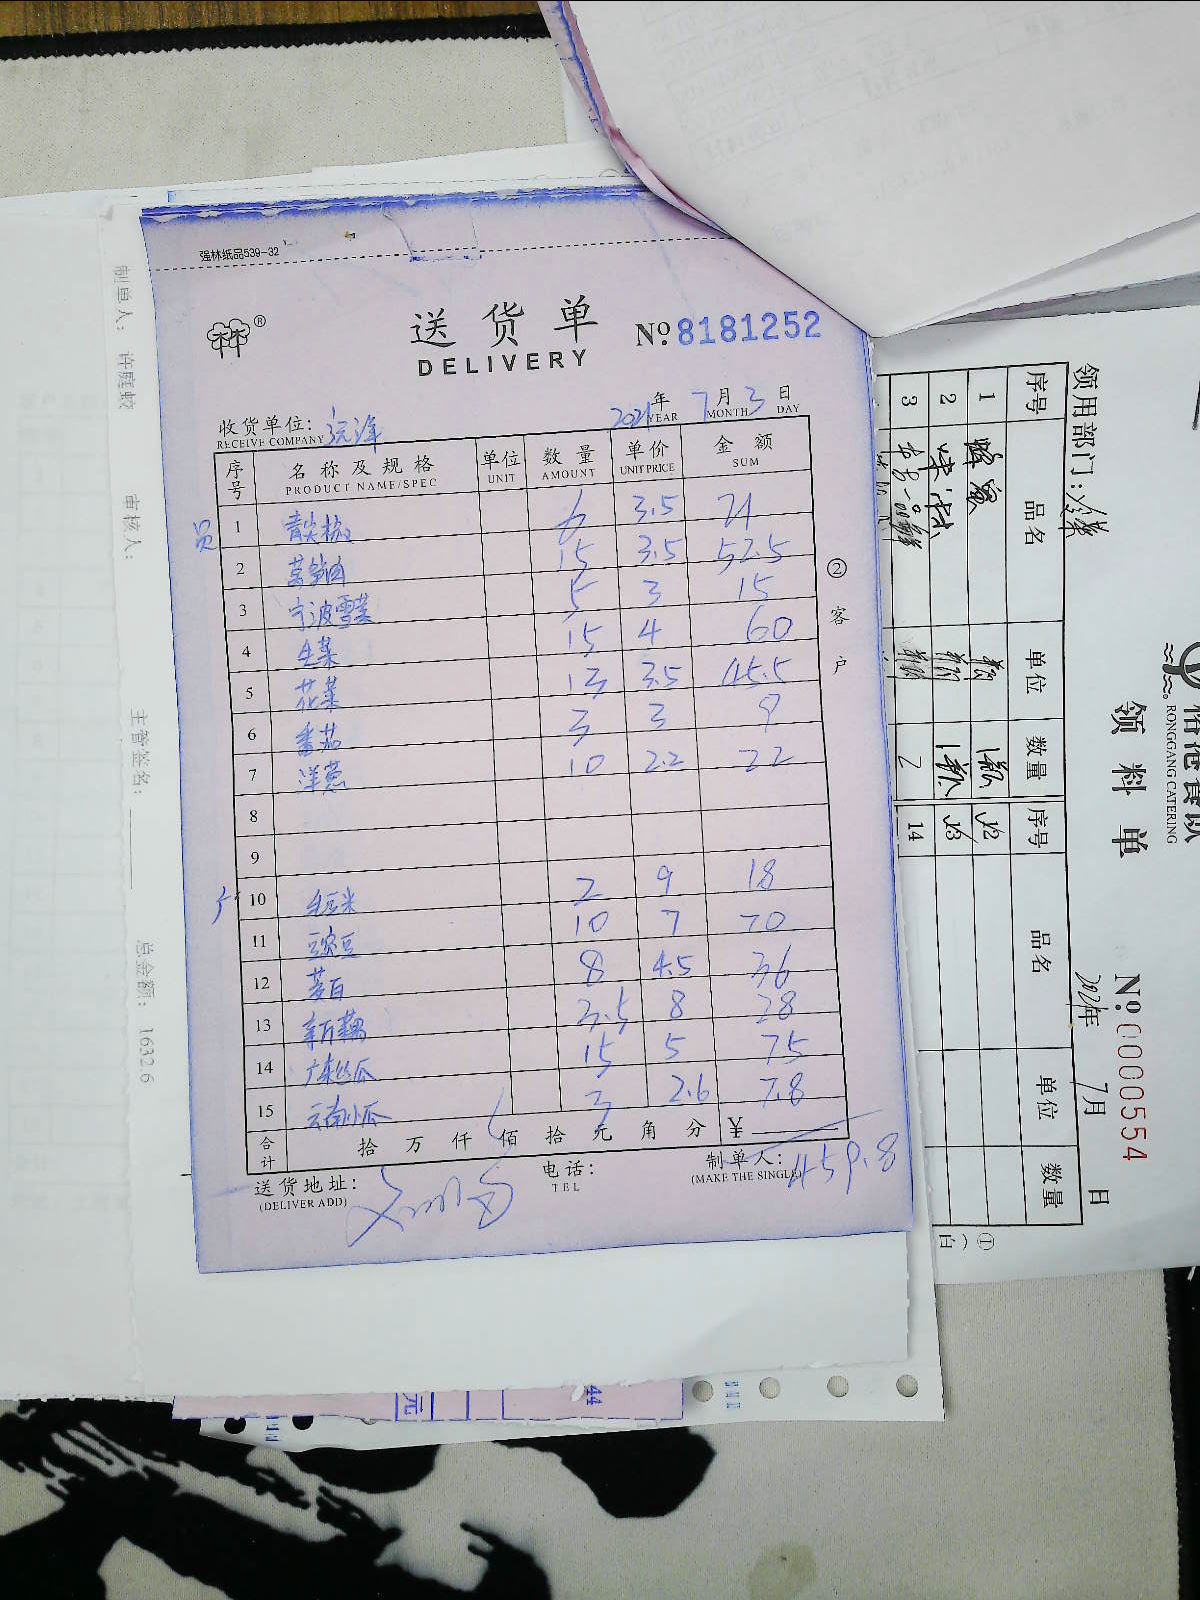 强林纸品539-32
送货单
DELIVERY
№ 8181252
2021年 7月 3日
YEAR MONTH DAY
收货单位:
RECEIVE COMPANY
序号 名称及规格 单位 数量 单价 金额
PRODUCT NAME/SPEC UNIT AMOUNT UNIT PRICE SUM
员
1 青尖椒 6 3.5 21
2 15 3.5 52.5
3 宁波雪菜 5 3 15
4 生菜 15 4 60
5 花菜 13 3.5 45.5
6 番茄 3 3 9
7 洋葱 10 2.2 22
8
9
10 2 9 18
11 豌豆 10 7 70
12 茭白 8 4.5 36
13 新藕 3.5 8 28
14 广东丝瓜 15 5 75
15 云南小瓜 3 2.6 7.8
合计 拾 万 仟 佰 拾 元 角 分 ¥
459.8
送货地址:
(DELIVER ADD)
电话:
TEL
制单人:
(MAKE THE SINGLE)
②客户
制单人: 许庭蛟
审核人:
主管签名:
总金额: 1632.6
RONGGANG CATERING
领料单
№ 0000554
领用部门: 冷菜
2021年 7月 日
序号 品名 单位 数量 序号 品名 单位 数量
1 蜂蜜
2
3 2 14
①(白
元
44